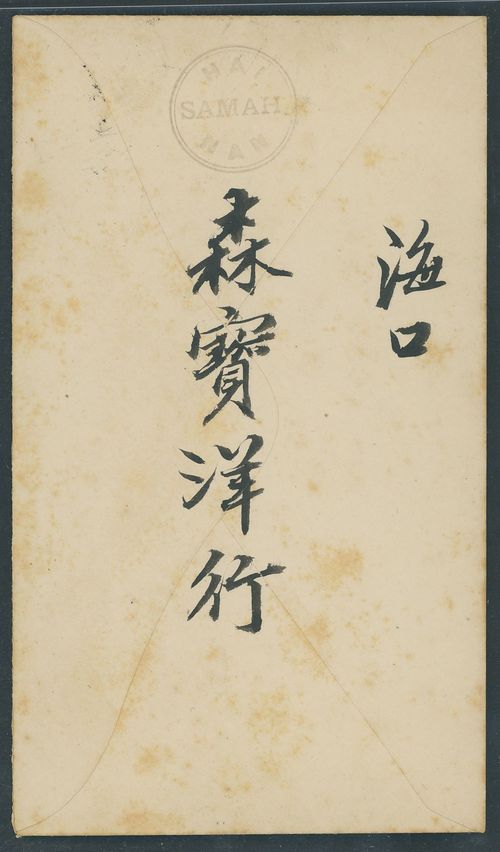 海口
森寶洋行
HAI
SAMAH
NAN